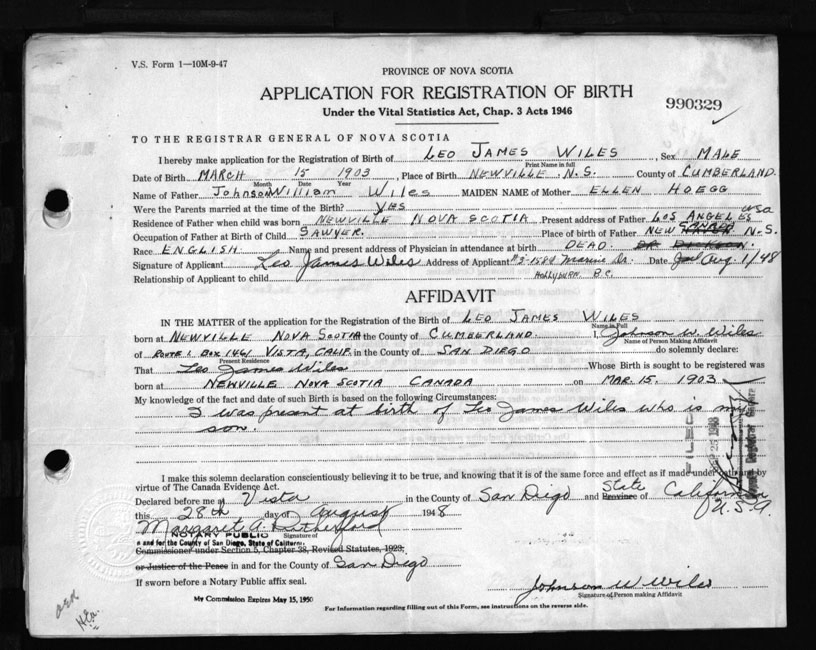 V.S. Form 1—10M-9-47
PROVINCE OF NOVA SCOTIA
APPLICATION FOR REGISTRATION OF BIRTH
990329
Under the Vital Statistics Act, Chap. 3 Acts 1946
TO THE REGISTRAR GENERAL OF NOVA SCOTIA
I hereby make application for the Registration of Birth of LEO JAMES WILES, Sex MALE
Print Name in full
Date of Birth MARCH 15 1903, Place of Birth NEWVILLE N.S. County of CUMBERLAND.
Month Date Year
Name of Father Johnson William Wiles MAIDEN NAME of Mother ELLEN HOEGG
Were the Parents married at the time of the Birth? YES
Residence of Father when child was born NEWVILLE NOVA SCOTIA Present address of Father LOS ANGELES USA
Occupation of Father at Birth of Child SAWYER. Place of birth of Father NEW CANADA N.S.
Race ENGLISH Name and present address of Physician in attendance at birth DEAD DR DICKSON.
Signature of Applicant Leo James Wiles Address of Applicant #3-1584 Marine Dr. Date Aug. 1/48
Relationship of Applicant to child Hollyburn B.C.
AFFIDAVIT
IN THE MATTER of the application for Registration of the Birth of LEO JAMES WILES
Name in Full
born at NEWVILLE NOVA SCOTIA in the County of CUMBERLAND. I, Johnson W. Wiles
Name of Person Making Affidavit
of ROUTE 1 BOX 1461 VISTA, CALIF. in the County of SAN DIEGO do solemnly declare:
Present Residence
That Leo James Wiles Whose Birth is sought to be registered was
born at NEWVILLE NOVA SCOTIA CANADA on MAR. 15. 1903
My knowledge of the fact and date of such Birth is based on the following Circumstances:
I was present at birth of Leo James Wiles who is my
son.
FILED
I make this solemn declaration conscientiously believing it to be true, and knowing that it is of the same force and effect as if made under oath and by
virtue of The Canada Evidence Act.
Declared before me at Vista in the County of San Diego and Province State of California
U.S.A.
this 28th day of August 1948
Margaret A. Rutherford
NOTARY PUBLIC Signature of
n and for the County of San Diego, State of Californi.
Commissioner under Section 5, Chapter 38, Revised Statutes, 1923;
or Justice of the Peace in and for the County of San Diego
If sworn before a Notary Public affix seal.
Johnson W Wiles
Signature of Person making Affidavit
My Commission Expires May 15, 1950
For Information regarding filling out of this Form, see instructions on the reverse side.